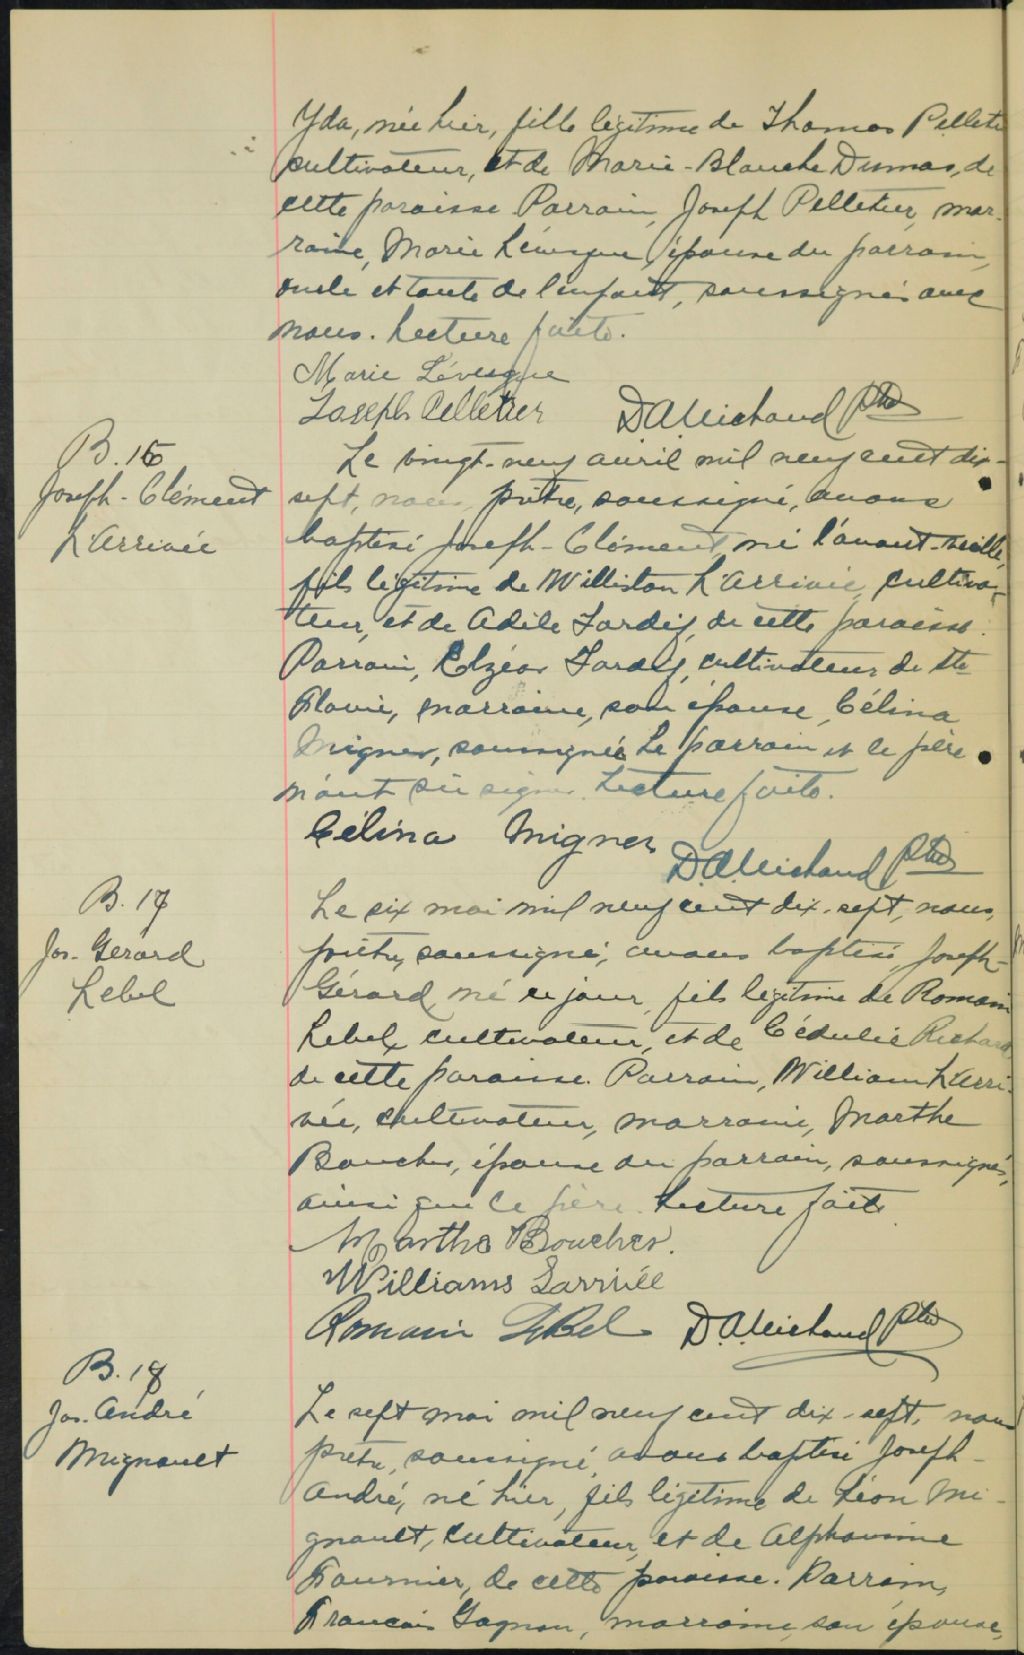 Yda, née hier, fille légitime de Thomas Pelletier
cultivateur, et de Marie-Blanche Dumas, de
cette paroisse. Parrain, Joseph Pelletier, mar-
raine, Marie Lévesque, épouse du parrain,
oncle et tante de l'enfant, soussignés avec
nous. Lecture faite.
Marie Lévesque
Joseph Pelletier D A Michaud Ptre
B. 16
Joseph-Clément
L'Arrivée
Le vingt-neuf avril mil neuf cent dix-
sept, nous, prêtre, soussigné, avons
baptisé Joseph-Clément, né l'avant-veille,
fils légitime de Williston L'Arrivée, cultiva-
teur, et de Adèle Tardif, de cette paroisse.
Parrain, Elzéar Tardif, cultivateur de Ste
Flavie, marraine, son épouse, Célina
Migner, soussignée. Le parrain et le père
n'ont su signer. Lecture faite.
Célina Migner
D. A. Michaud Ptre
B. 17
Jos. Gérard
Lebel
Le six mai mil neuf cent dix-sept, nous,
prêtre, soussigné, avons baptisé Joseph-
Gérard, né ce jour, fils légitime de Romain
Lebel, cultivateur, et de Cédulie Richard,
de cette paroisse. Parrain, William L'Arri-
vée, cultivateur, marraine, Marthe
Boucher, épouse du parrain, soussignés,
ainsi que le père. Lecture faite
Marthe Boucher.
Williams Larrivée
Romain LeBel D. A. Michaud Ptre
B. 18
Jos. André
Mignault
Le sept mai mil neuf cent dix-sept, nous
prêtre, soussigné, avons baptisé Joseph-
André, né hier, fils légitime de Léon Mi-
gnault, cultivateur, et de Alphonsine
Fournier, de cette paroisse. Parrain,
Francois Gagnon, marraine, son épouse,